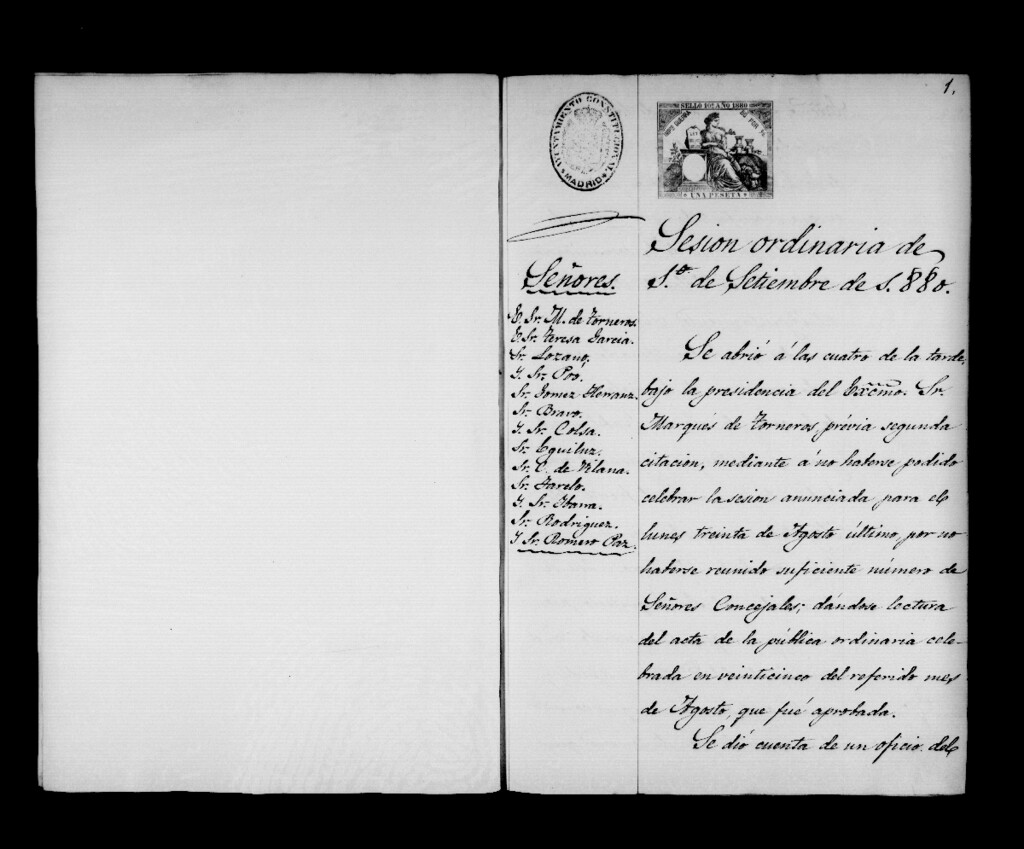 1.
AYUNTAMIENTO CONSTITUCIONAL
MADRID
SELLO 10º AÑO 1880
UNA PESETA
Sesion ordinaria de
1.º de Setiembre de 1.880.
Señores.
E. Sr. M. de Torneros.
E. Sr. Teresa Garcia.
Sr. Lozano,
Y. Sr. Poo.
Sr. Gomez Herranz.
Sr. Bravo.
Y. Sr. Colsa.
Sr. Eguiluz.
Sr. C. de Vilana.
Sr. Farelo.
Y. Sr. Ibarra.
Sr. Rodriguez.
Y Sr. Romero Paz.
Se abrió á las cuatro de la tarde,
bajo la presidencia del Excmo. Sr.
Marqués de Torneros, prévia segunda
citacion, mediante á no haberse podido
celebrar la sesion anunciada para el
lunes treinta de Agosto último, por no
haberse reunido suficiente número de
Señores Concejales; dándose lectura
del acta de la pública ordinaria cele-
brada en veinticinco del referido mes
de Agosto, que fué aprobada.
Se dió cuenta de un oficio del